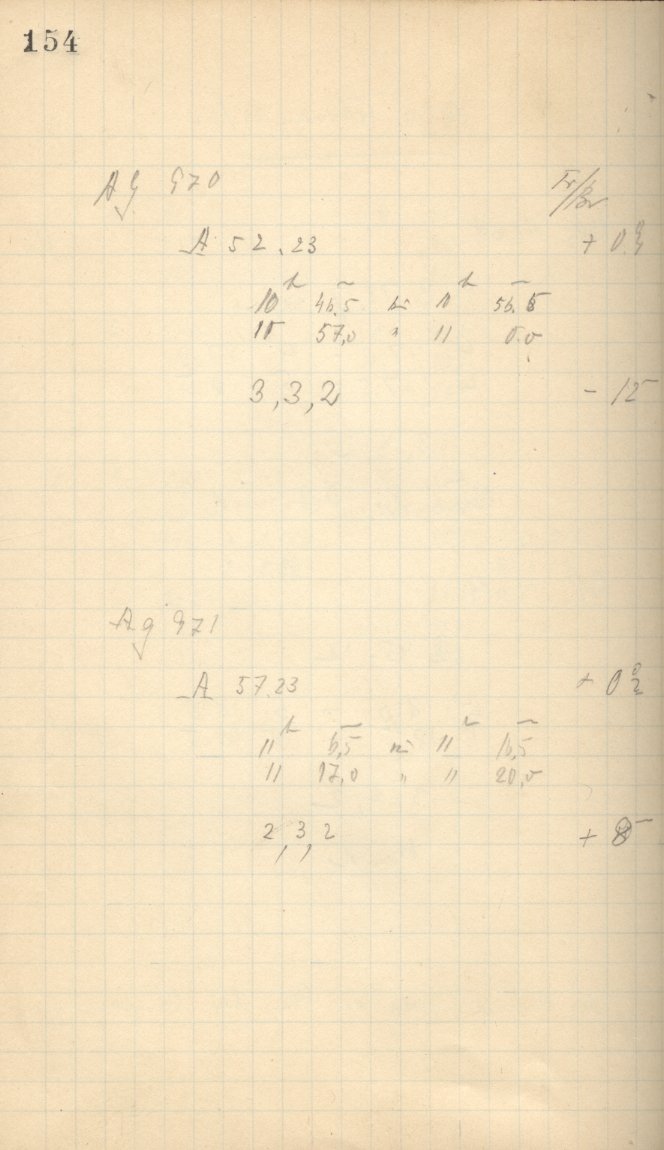 154
AG 970 Fr/Br
A 52.23 + 0.3
10h 46,5m bis 10h 56.5m
10 57,0 " 11 0.0
3,3,2 - 15
Ag 971
A 57.23 + 0.2
11h 6,5m bis 11h 16,5m
11 17,0 " 11 20,0
2,3,2 + 8